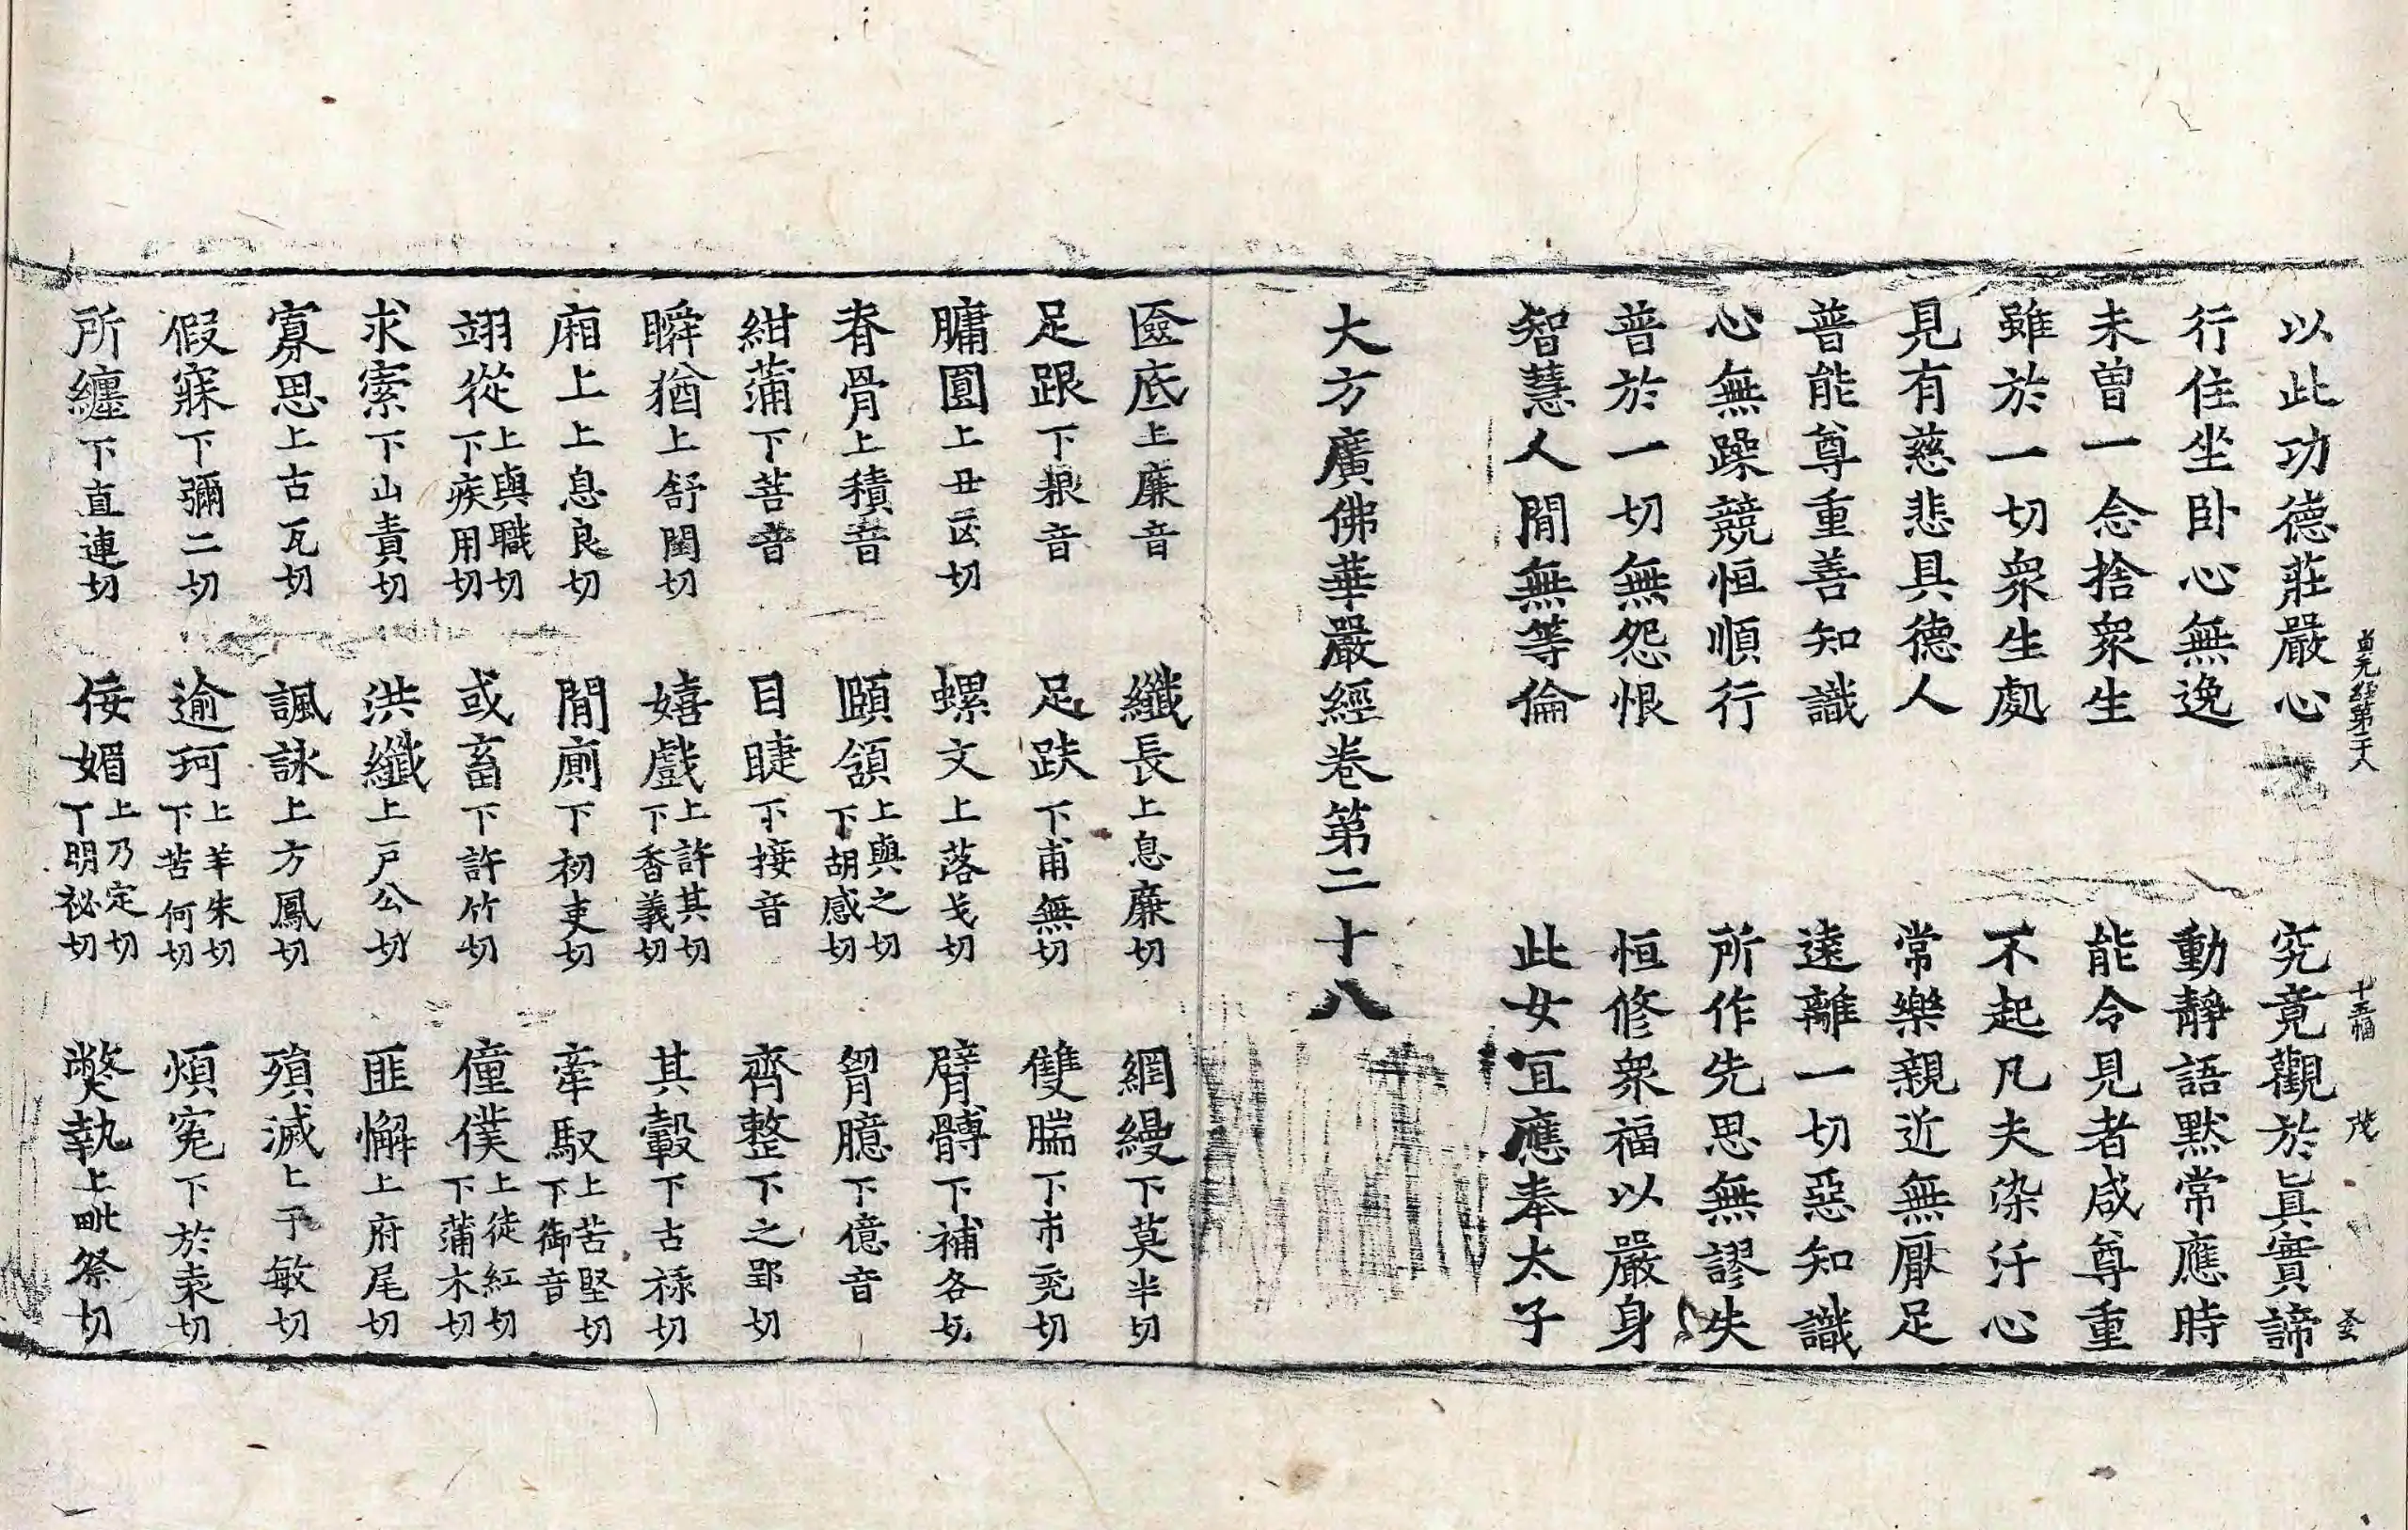 以此功德莊嚴心　究竟觀於眞實諦
貞元經第二十八　十五幅　茂
行住坐卧心無逸　動靜語默常應時
未曾一念捨衆生　能令見者咸尊重
雖於一切衆生處　不起凡夫染汙心
見有慈悲具德人　常樂親近無厭足
普能尊重善知識　遠離一切惡知識
心無躁競恒順行　所作先思無謬失
普於一切無怨恨　恒修衆福以嚴身
智慧人間無等倫　此女宜應奉太子
大方廣佛華嚴經卷第二十八
匳底上廉音　纖長上息廉切　網縵下莫半切
足跟下根音　足趺下甫無切　雙腨下市兖切
𦟛圓上丑凶切　螺文上落戈切　臂髆下補各切
脊骨上積音　頤頷上與之切下胡感切　胷臆下億音
紺蒲下菩音　目睫下接音　齊整下之郢切
瞬猶上舒閏切　嬉戲上許其切下香義切　其轂下古祿切
廂上上息良切　間廁下初吏切　牽馭上苦堅切下御音
翊從上與職切下疾用切　或畜下許竹切　僮僕上徒紅切下蒲木切
求索下山責切　洪纖上戶公切　匪懈上府尾切
寡思上古瓦切　諷詠上方鳳切　殞滅上于敏切
假寐下彌二切　逾珂上羊朱切下苦何切　煩寃下於袁切
所纏下直連切　佞媚上乃定切下明祕切　獘執上毗祭切